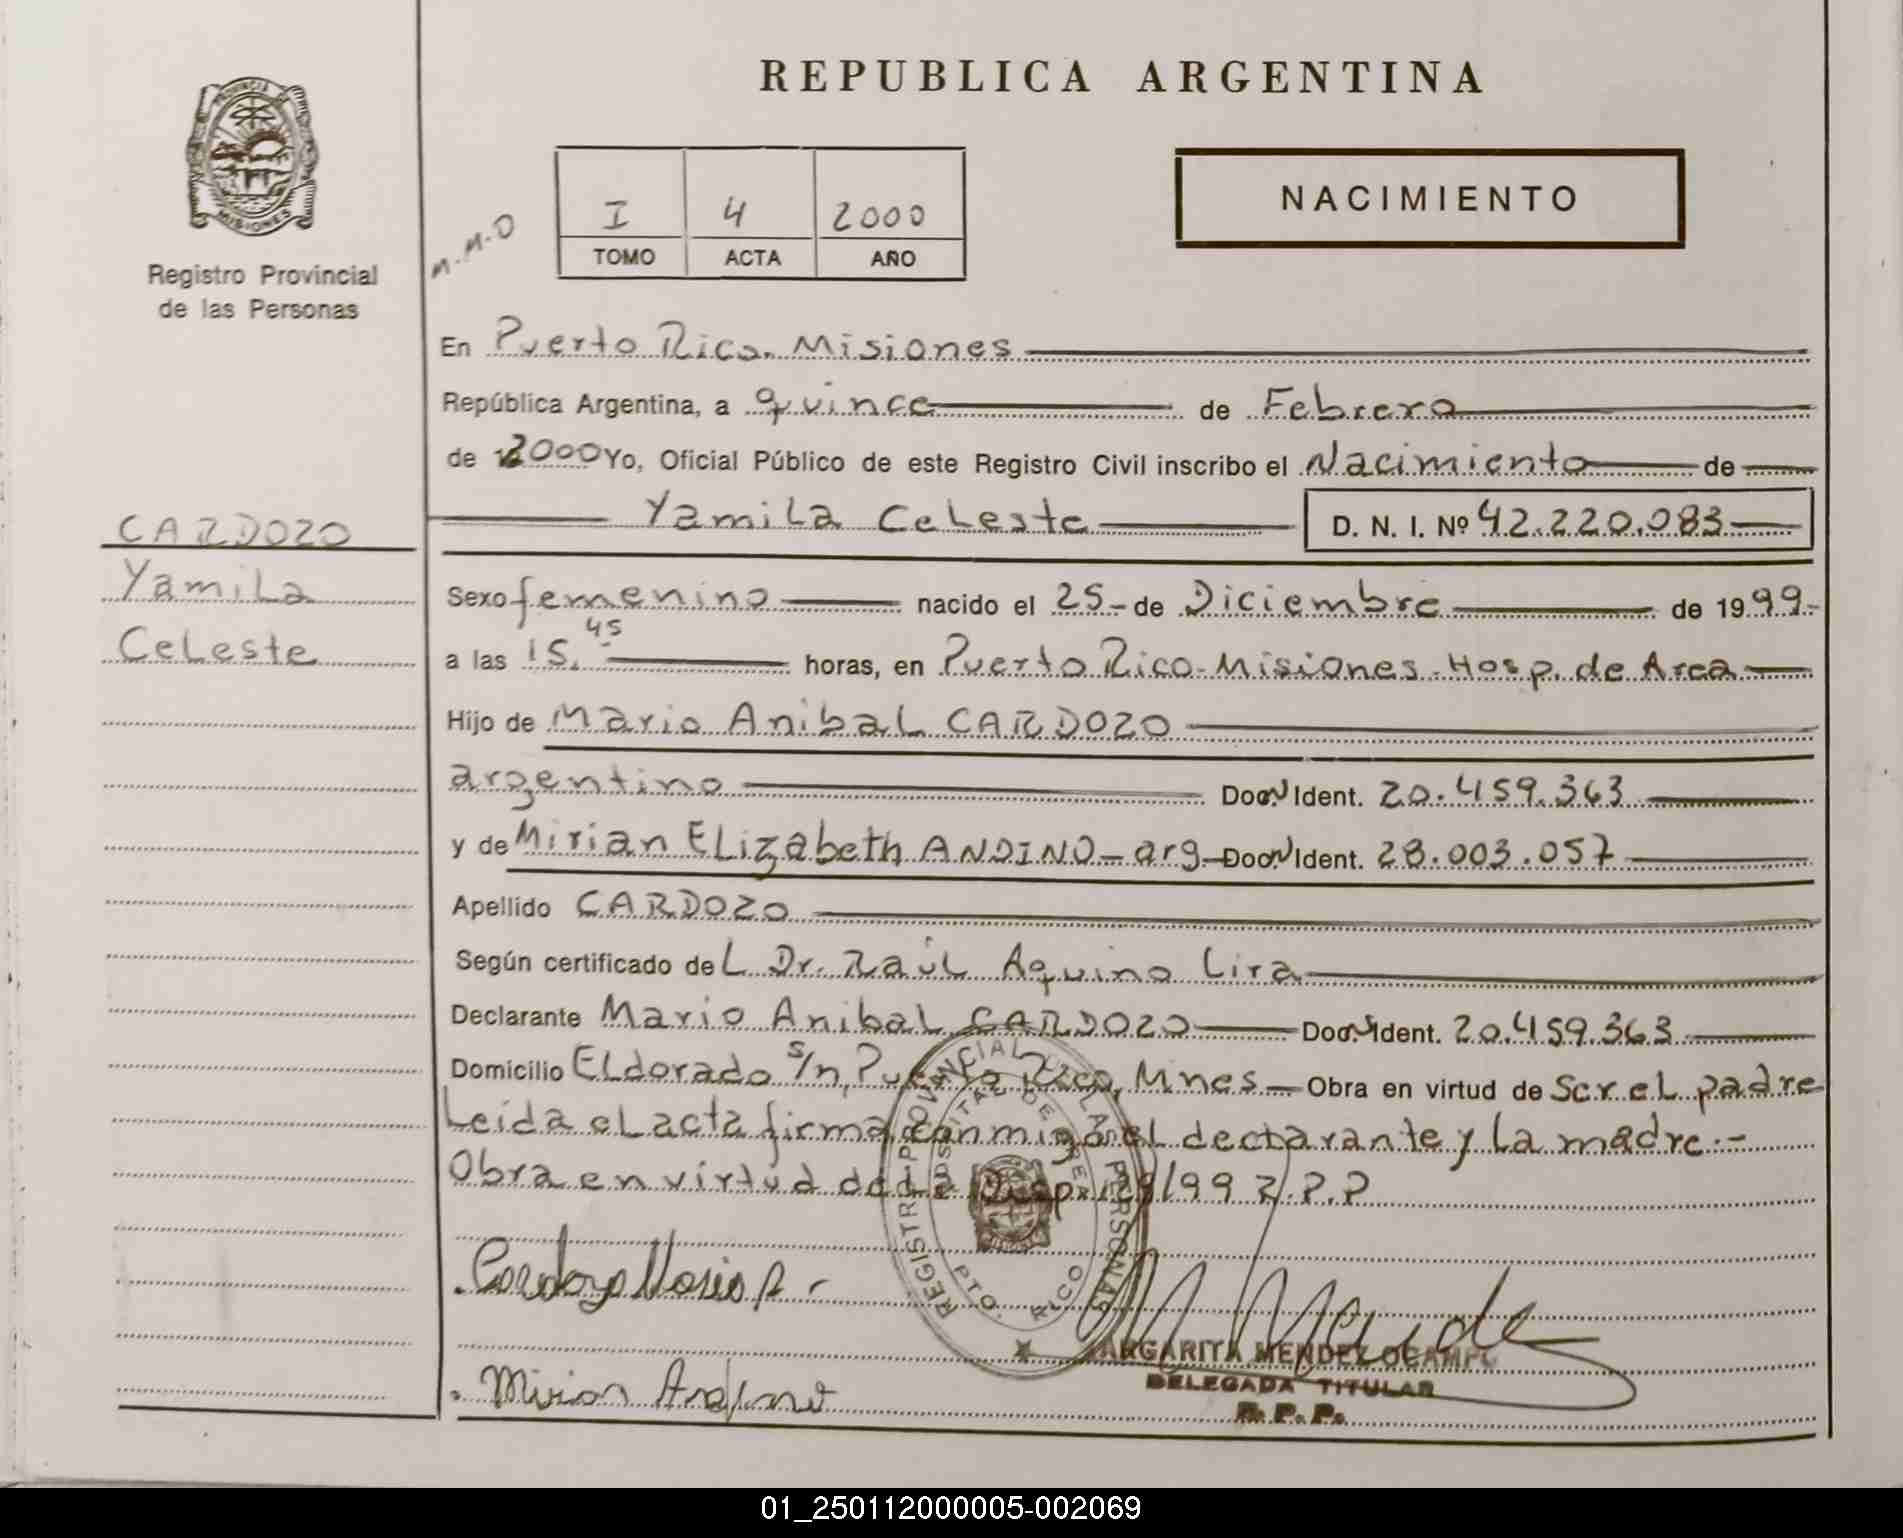 REPUBLICA ARGENTINA
PROVINCIA DE
MISIONES
Registro Provincial
de las Personas
M.M.O
I 4 2000
TOMO ACTA AÑO
NACIMIENTO
En Puerto Rico. Misiones
República Argentina, a quince de Febrero
de 2000 Yo, Oficial Público de este Registro Civil inscribo el Nacimiento de
Yamila Celeste D. N. I. Nº 42.220.083
CARDOZO
Yamila
Celeste
Sexo femenino nacido el 25- de Diciembre de 1999-
a las 15.45 horas, en Puerto Rico-Misiones-Hosp. de Area
Hijo de Mario Anibal CARDOZO
argentino Doc. N Ident. 20.459.363
y de Mirian Elizabeth ANDINO - arg- Doc. N Ident. 28.003.057
Apellido CARDOZO
Según certificado del Dr. Raúl Aquino Lira
Declarante Mario Anibal CARDOZO Doc. N Ident. 20.459.363
Domicilio Eldorado s/n, Puerto Rico, Mnes- Obra en virtud de Ser el padre
Leída el acta firma conmigo el declarante y la madre.-
Obra en virtud de la Disp. /99 R.P.P
REGISTRO PROVINCIAL DE LAS PERSONAS
HOSPITAL DE AREA
PTO. RICO
Cardozo Mario A.
Mirian Andino
MARGARITA MENDEZ OCAMPO
DELEGADA TITULAR
R. P. P.
01_250112000005-002069